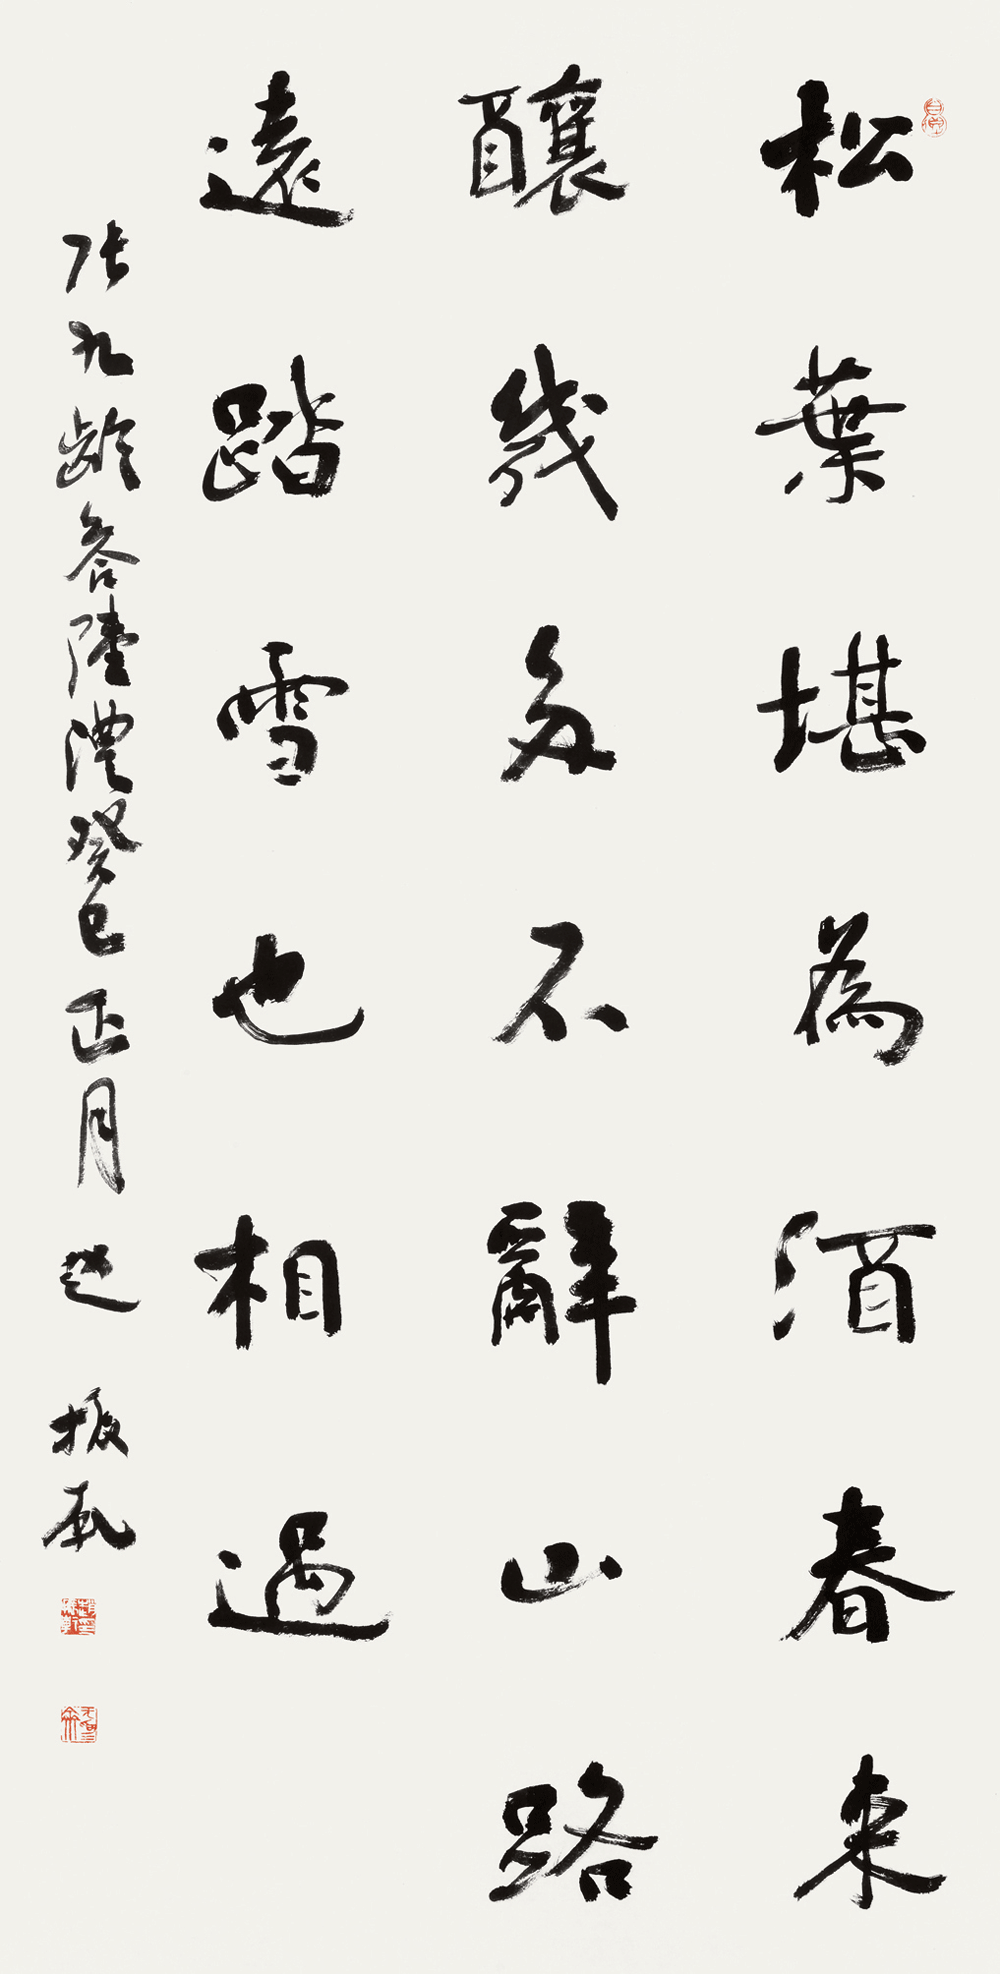 松葉堪為酒春来
釀幾多不辭山路
遠踏雪也相過
张九齡答陸澧癸巳正月
振